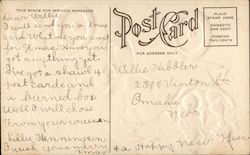 THIS SPACE FOR WRITING MESSAGES
Dear Willie.
I will send you a Xmas
card. What do you want
for Xmas. Have you
got anything yet.
I've got a shawl &
post cards and
a burned box
Well I will close
From your cousin
Lillie Henningsen
I wish you a merry
Xmas
Post Card
FOR ADDRESS ONLY
PLACE
STAMP HERE
DOMESTIC
ONE CENT
FOREIGN
TWO CENTS
Willie Hibbler
Vinton St
Omaha
Nebr
& a Happy New Year